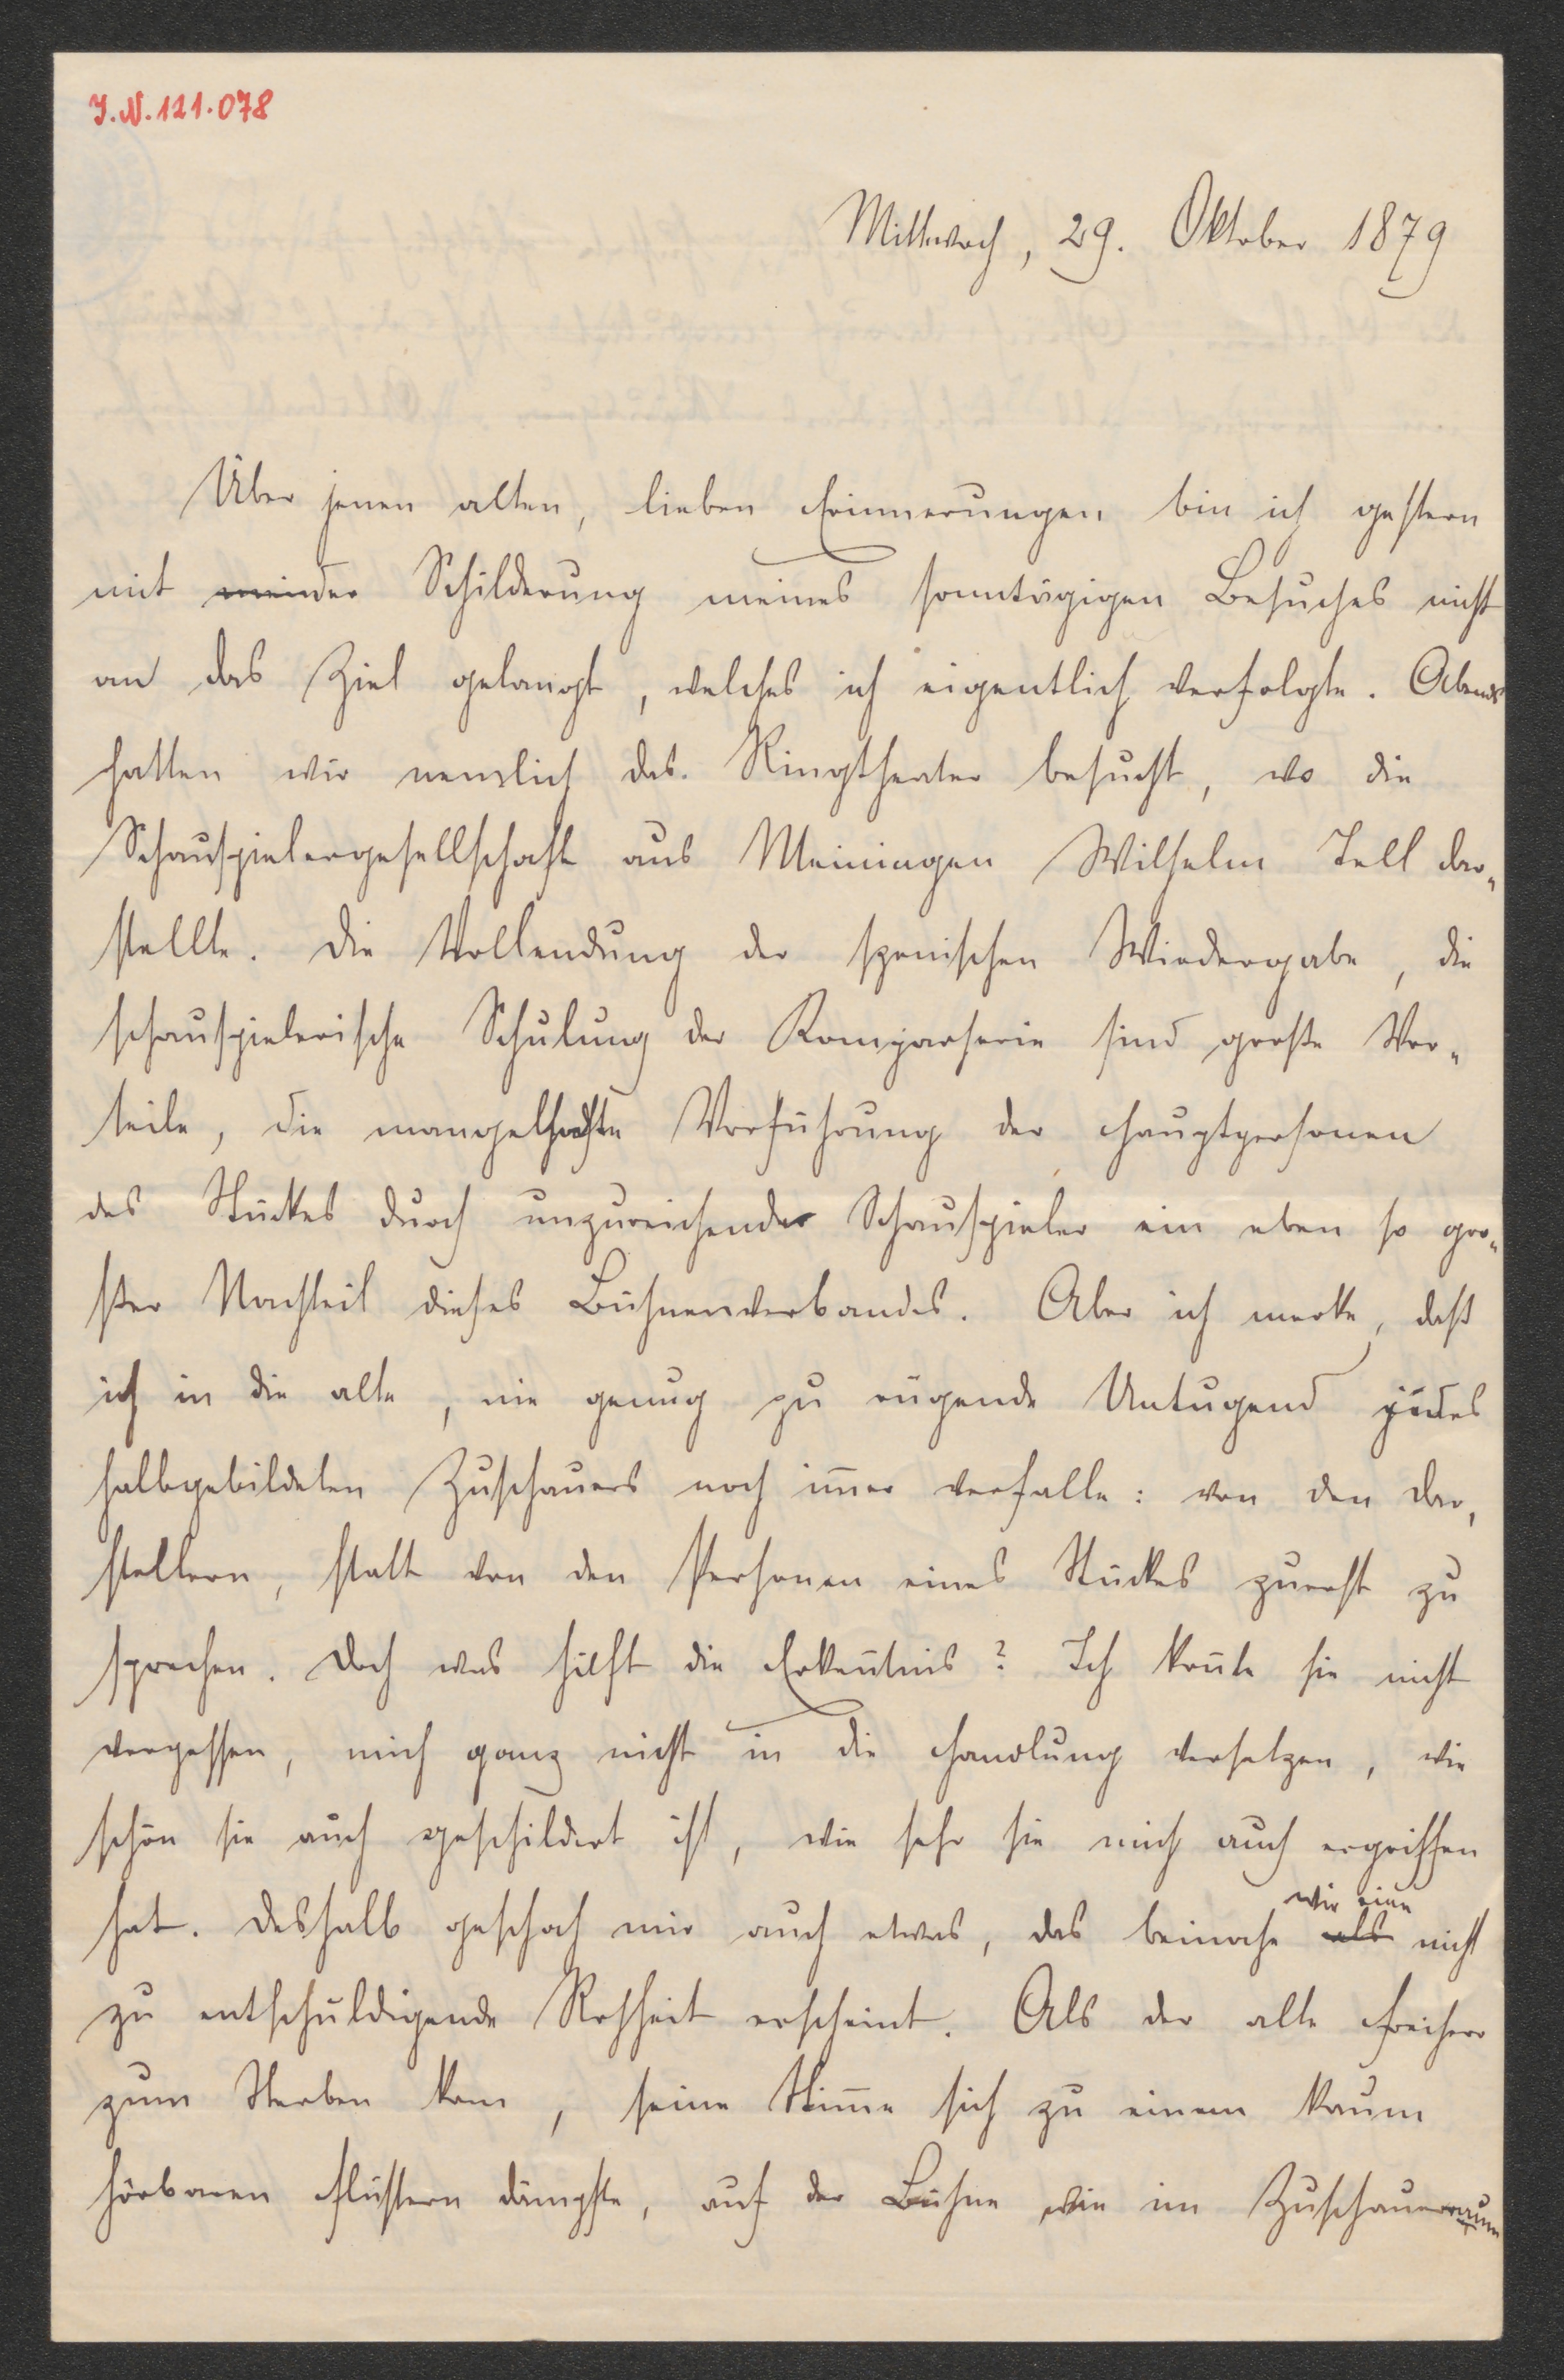 J.N. 121.078
Mittwoch, 29. Oktober 1879
Über jenen alten, lieben Erinnerungen bin ich gestern
mit meiner der Schilderung meines sonntägigen Besuches nicht
an das Ziel gelangt, welches ich eigentlich verfolgte. Abends
hatten wir nemlich das Ringtheater besucht, wo die
Schauspielergesellschaft aus Meiningen Wilhelm Tell dar-
stellte. Die Vollendung der szenischen Wiedergabe, die
schauspielerische Schulung der Komparserie sind große Vor-
teile, die mangelhafte Vorführung der Hauptpersonen
des Stückes durch unzureichende Schauspieler ein eben so gro-
ßer Nachteil dieses Bühnenverbandes. Aber ich merke, daß
ich in die alte, nie genug zu rügende Untugend jedes
halbgebildeten Zuschauers noch im̅er verfalle: von den Dar-
stellern, statt von den Personen eines Stückes zuerst zu
sprechen. Doch was hilft die Erken̅tnis? Ich kon̅te sie nicht
vergessen, mich ganz nicht in die Handlung versetzen, wie
schön sie auch geschildert ist, wie sehr sie mich auch ergriffen
hat. Deshalb geschah mir auch etwas, das beinahe als wie eine nicht
zu entschuldigende Rohheit erscheint. Als der alte Freiherr
zum Sterben kam, seine Stim̅e sich zu einem kaum
hörbaren Flüstern dämpfte, auf der Bühne wie im Zuschauerraum